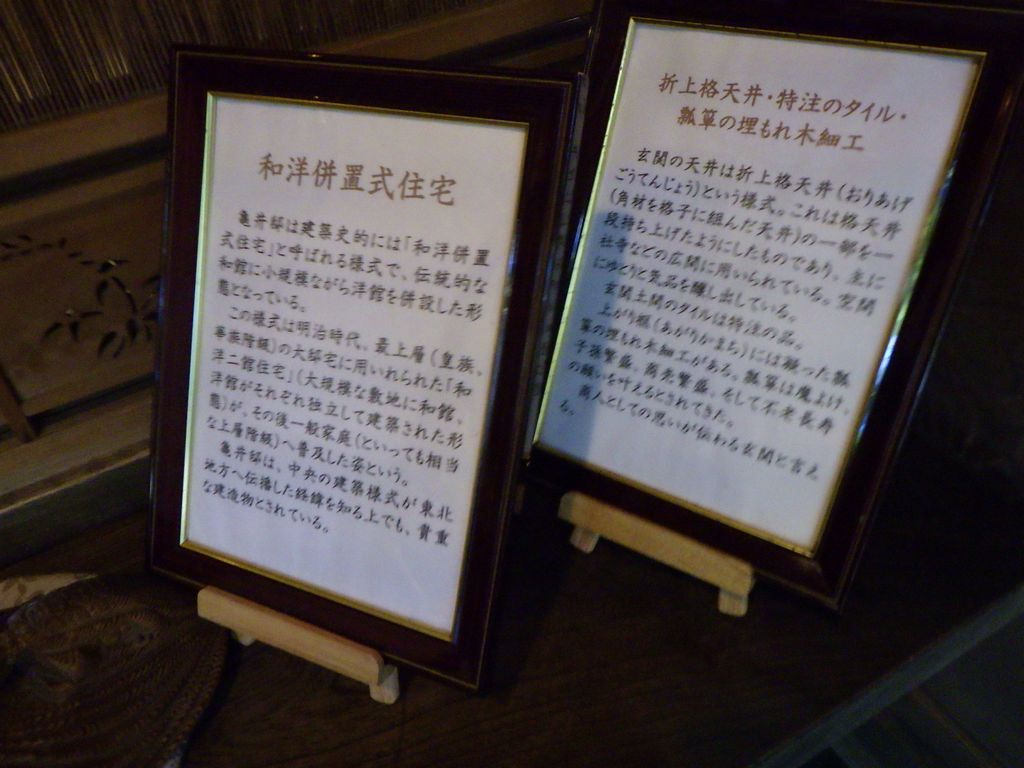 和洋併置式住宅
亀井邸は建築史的には「和洋併置
式住宅」と呼ばれる様式で、伝統的な
和館に小規模ながら洋館を併設した形
態となっている。
この様式は明治時代、最上層(皇族、
華族階級)の大邸宅に用いれられた「和
洋二館住宅」(大規模な敷地に和館、
洋館がそれぞれ独立して建築された形
態)が、その後一般家庭(といっても相当
な上層階級)へ普及した姿という。
亀井邸は、中央の建築様式が東北
地方へ伝播した経緯を知る上でも、貴重
な建造物とされている。
折上格天井・特注のタイル・
瓢箪の埋もれ木細工
玄関の天井は折上格天井(おりあげ
ごうてんじょう)という様式。これは格天井
(角材を格子に組んだ天井)の一部を一
段持ち上げたようにしたものであり、主に
社寺などの広間に用いられている。空間
にゆとりと気品を醸し出している。
玄関土間のタイルは特注の品。
上がり框(あがりかまち)には凝った瓢
箪の埋もれ木細工がある。瓢箪は魔よけ、
子孫繁盛、商売繁盛、そして不老長寿
の願いを叶えるとされてきた。
商人としての思いが伝わる玄関と言え
る。